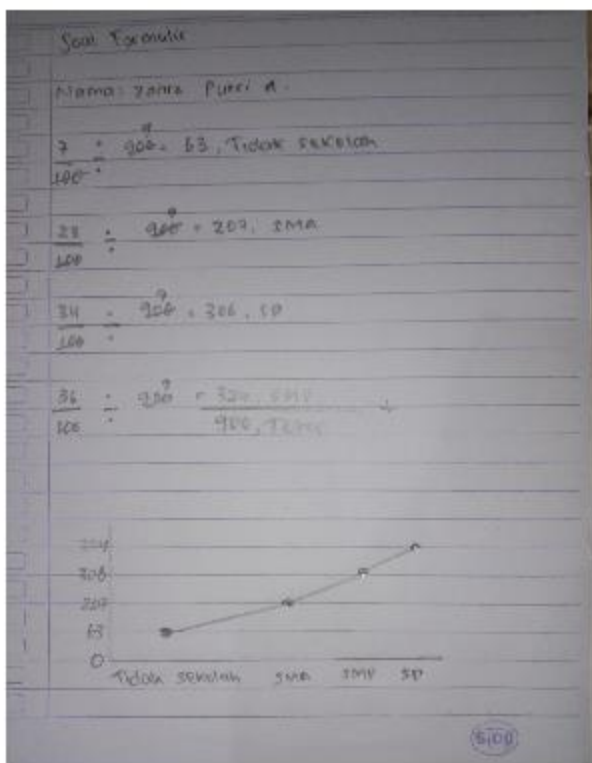 Soal Formulir
Nama: Zahra Putri A.
7/100 ÷ 900 9 = 63, Tidak sekolah
23/100 ÷ 900 9 = 207, SMA
34/100 ÷ 900 9 = 306, SD
36/100 ÷ 900 9 = 324, SMP +
900,
306
207
63
0
Tidak sekolah SMA SMP SD